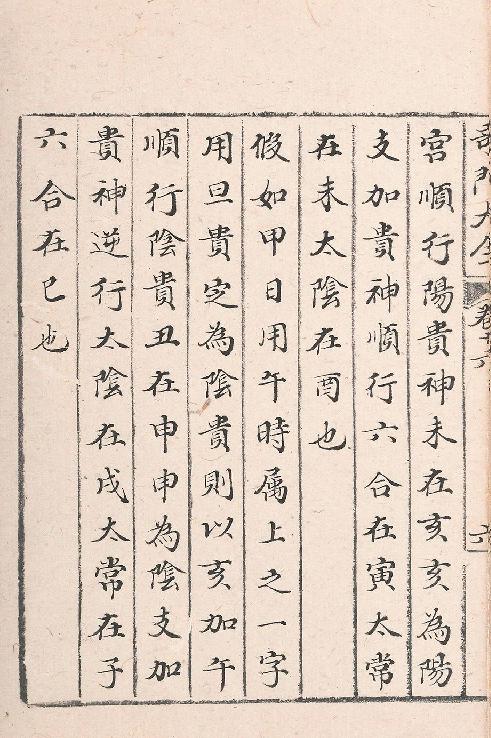 奇門大全 卷十六 六
宮順行陽貴神未在亥亥為陽
支加貴神順行六合在寅太常
在未太陰在酉也
假如甲日用午時屬上之一字
用旦貴定為陰貴則以亥加午
順行陰貴丑在申申為陰支加
貴神逆行太陰在戌太常在子
六合在巳也